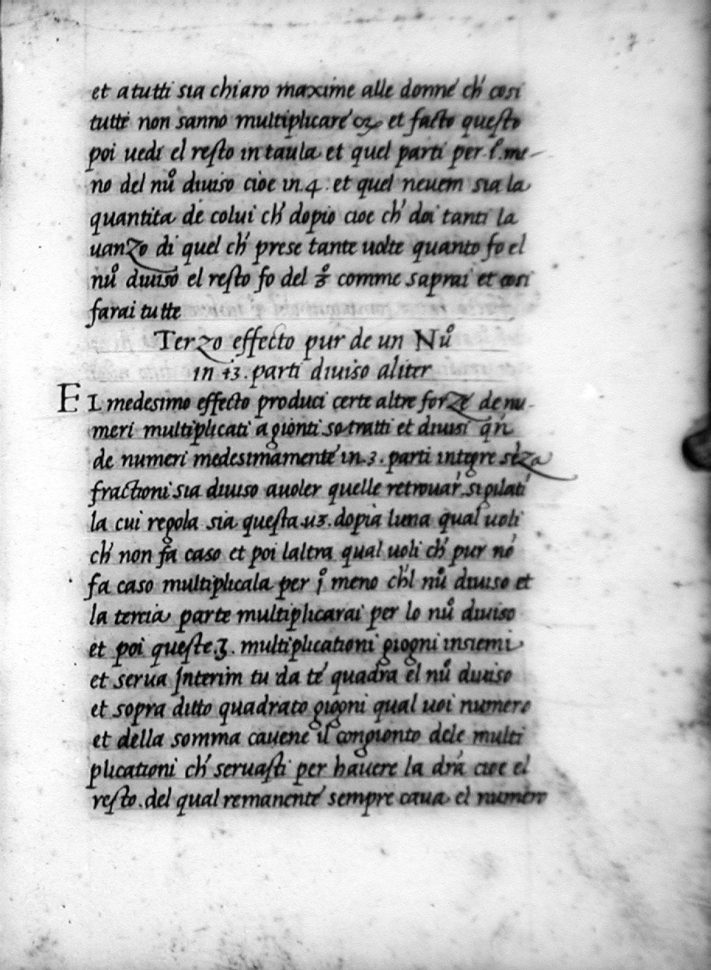 et a tutti sia chiaro maxime alle donne ch' cosi
tutte non sanno multiplicare et facto questo
poi uedi el resto in taula et quel parti per .1. me-
no del nuº diuiso cioe in .4. et quel neuem sia la
quantita de colui ch' dopio cioe ch' doi tanti la
uanzo di quel ch' prese tante uolte quanto fo el
nuº diuiso el resto fo del 3º comme saprai et cosi
farai tutte
Terzo effecto pur de un Nuº
in .13. parti diuiso aliter
EL medesimo effecto produci certe altre forze de nu-
meri multiplicati agionti sotratti et diuisi qñ
de numeri medesimamente in .3. parti integre seza
fractioni sia diuiso auoler quelle retrouar'
la cui regola sia questa. u3. dopia luna qual uoli
ch' non fa caso et poi laltra qual uoli ch' pur nõ
fa caso multiplicala per jº meno ch'l nuº diuiso et
la tercia parte multiplicarai per lo nuº diuiso
et poi queste .3. multiplicationi giogni insiemi
et serua Interim tu da te quadra el nuº diuiso
et sopra ditto quadrato giogni qual uoi numero
et della somma cauene il congionto dele multi
plicationi ch' seruasti per hauere la dr̃a cioe el
resto. del qual remanente sempre caua el numero